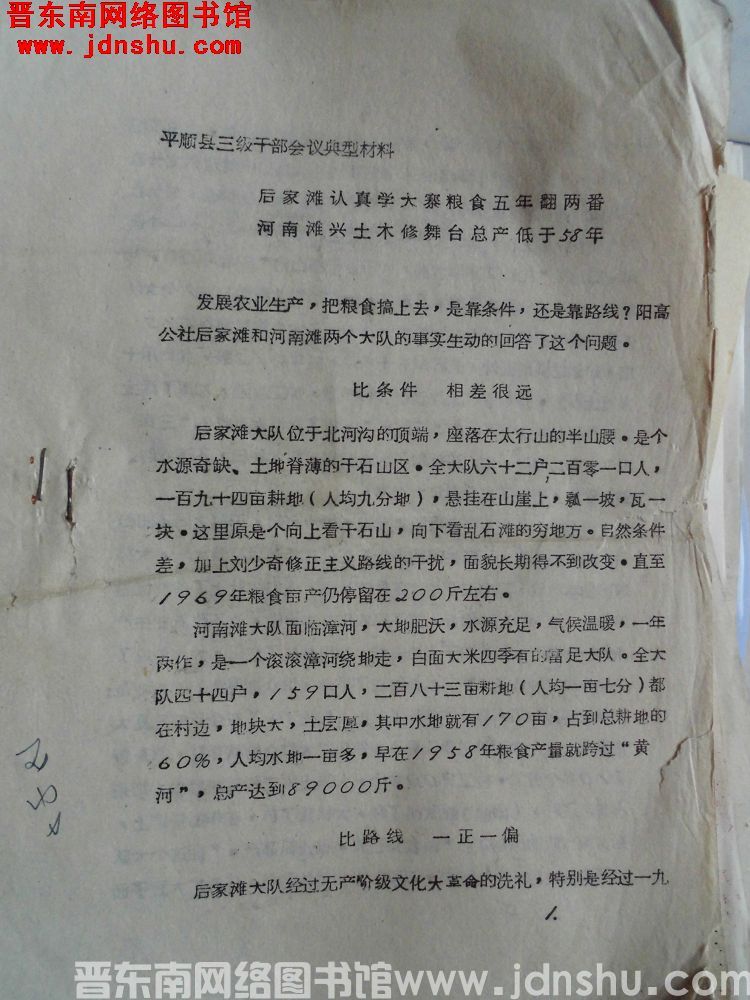 晋东南网络图书馆
www.jdnshu.com
平顺县三级干部会议典型材料
后家滩认真学大寨粮食五年翻两番
河南滩兴土木修舞台总产低于58年
发展农业生产，把粮食搞上去，是靠条件，还是靠路线？阳高
公社后家滩和河南滩两个大队的事实生动的回答了这个问题。
比条件 相差很远
后家滩大队位于北河沟的顶端，座落在太行山的半山腰。是个
水源奇缺、土地脊薄的干石山区。全大队六十二户二百零一口人，
一百九十四亩耕地（人均九分地），悬挂在山崖上，瓢一坡，瓦一
块。这里原是个向上看干石山，向下看乱石滩的穷地方。自然条件
差，加上刘少奇修正主义路线的干扰，面貌长期得不到改变。直至
1969年粮食亩产仍停留在200斤左右。
河南滩大队面临漳河，大地肥沃，水源充足，气候温暖，一年
两作，是一个滚滚漳河绕地走，白面大米四季有的富足大队。全大
队四十四户，159口人，二百八十三亩耕地（人均一亩七分）都
在村边，地块大，土层厚，其中水地就有170亩，占到总耕地的
60%，人均水地一亩多，早在1958年粮食产量就跨过“黄
河”，总产达到89000斤。
比路线 一正一偏
后家滩大队经过无产阶级文化大革命的洗礼，特别是经过一九
1.
晋东南网络图书馆www.jdnshu.com